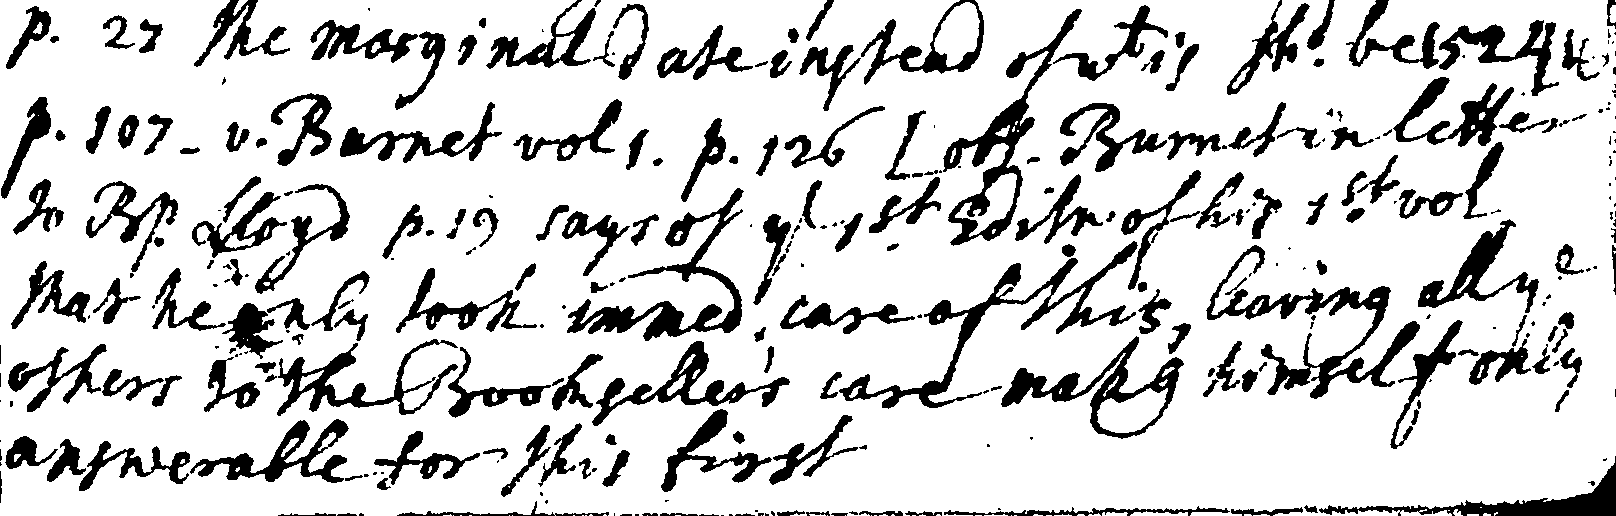 p. 27 the marginal date instead of wt is shd. be 1524
p. 107 - v. Burnet vol 1. p. 126 [ obs. Burnet in letter
to Bp. Lloyd p. 19 says of ye 1st. Editn. of his 1st. vol
that he only took immed. care of this, leaving all ye
others to the Bookseller's care makg himself only
answerable for this first